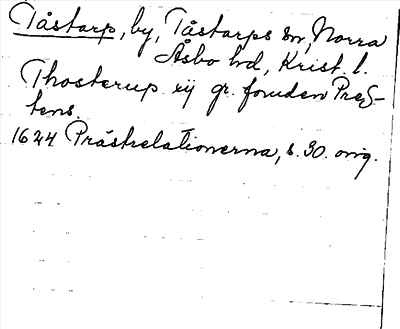 Tåstarp, by, Tåstarps sn, Norra
Åsbo hd, Krist. l.
Thosterup iij gr. foruden Præs-
tens.
1624 Prästrelationerna, s. 30. orig.